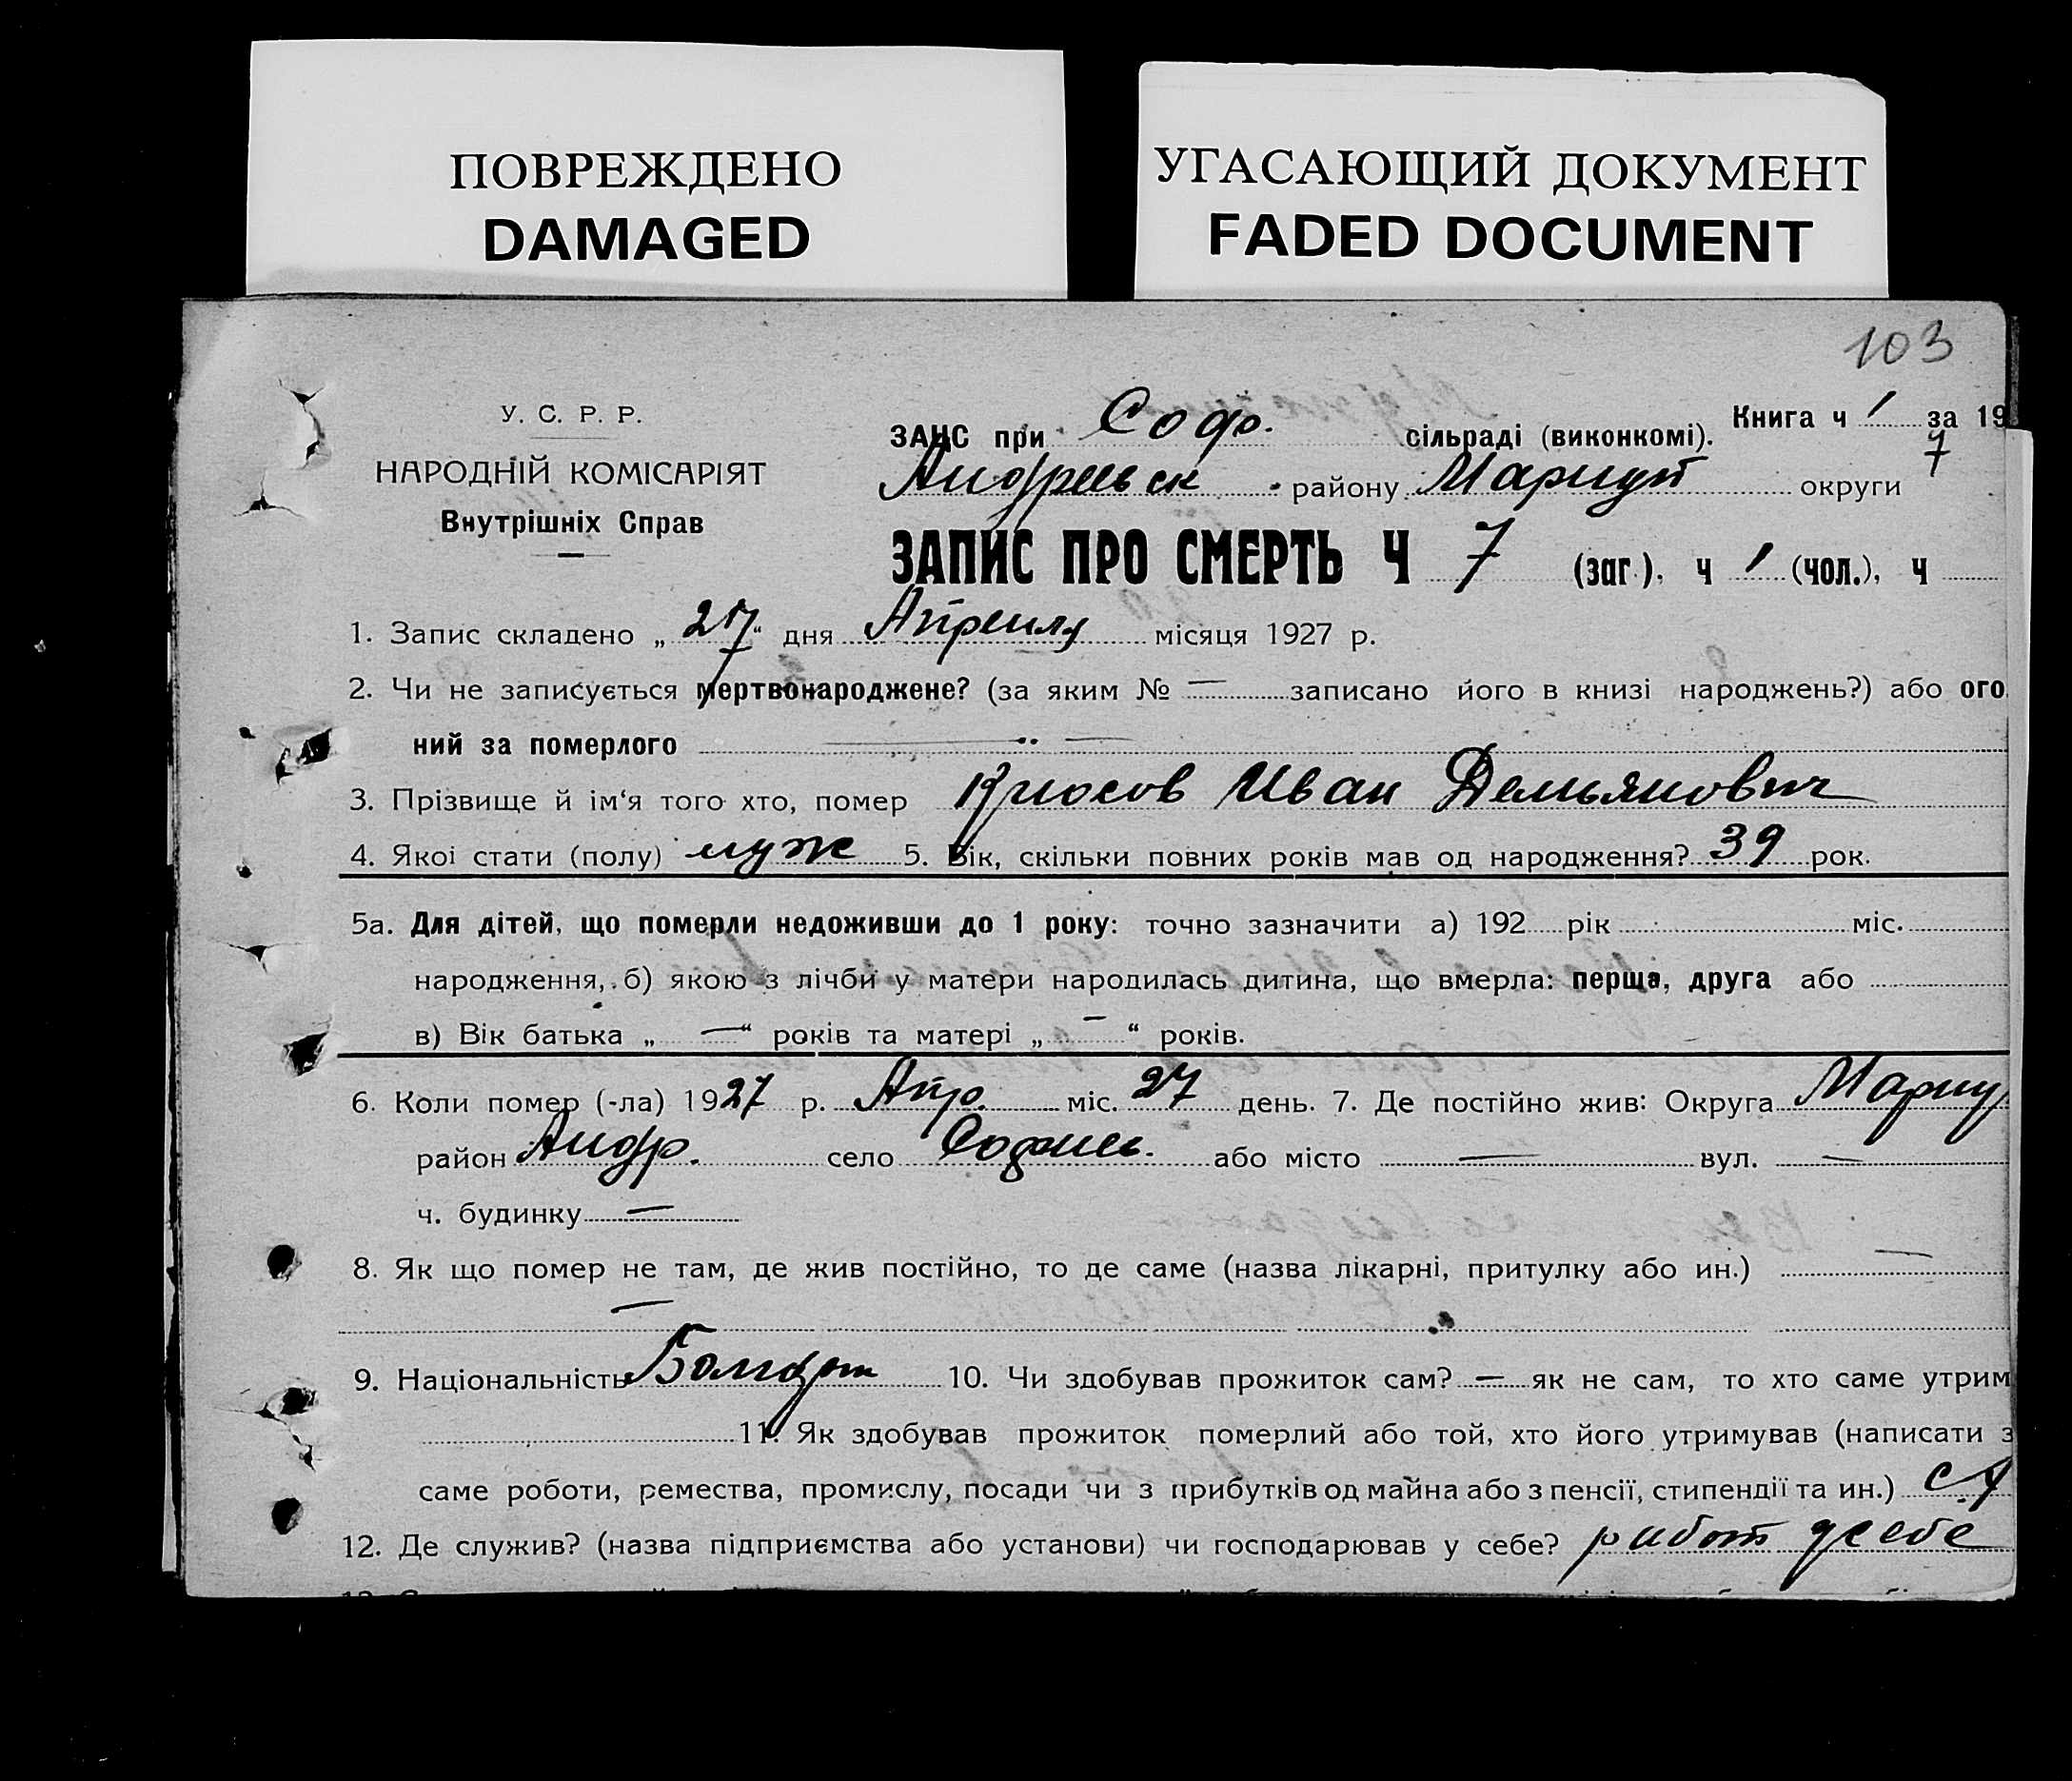 ПОВРЕЖДЕНО
DAMAGED
УГАСАЮЩИЙ ДОКУМЕНТ
FADED DOCUMENT
103
У. С. Р. Р.
НАРОДНІЙ КОМІСАРІЯТ
Внутрішніх Справ
Книга ч 1 за 19
7
ЗАНС при Соф. сільраді (виконкомі).
Андреевск району Мариуп округи
ЗАПИС ПРО СМЕРТЬ Ч 7 (заг.), ч 1 (чол.), ч
1. Запис складено „ 27 “ дня Апреля місяця 1927 р.
2. Чи не записується мертвонароджене? (за яким № — записано його в книзі народжень?) або ого
ний за померлого —
3. Прізвище й ім‘я того хто, помер Иван Демьянович
4. Якої стати (полу) муж 5. Вік, скільки повних років мав од народження? 39 рок.
5а. Для дітей, що померли недоживши до 1 року: точно зазначити а) 192 рік міс.
народження, б) якою з лічби у матери народилась дитина, що вмерла: перша, друга або
в) Вік батька „ — “ років та матері „ — “ років.
6. Коли помер (-ла) 1927 р. Апр. міс. 27 день. 7. Де постійно жив: Округа Мариу
район Андр. село або місто — вул. —
ч. будинку —
8. Як що помер не там, де жив постійно, то де саме (назва лікарні, притулку або ин.) —
—
9. Національність 10. Чи здобував прожиток сам? — як не сам, то хто саме утрим
11. Як здобував прожиток померлий або той, хто його утримував (написати з
саме роботи, ремества, промислу, посади чи з прибутків од майна або з пенсії, стипендії та ин.)
12. Де служив? (назва підприємства або установи) чи господарював у себе? работ у себе